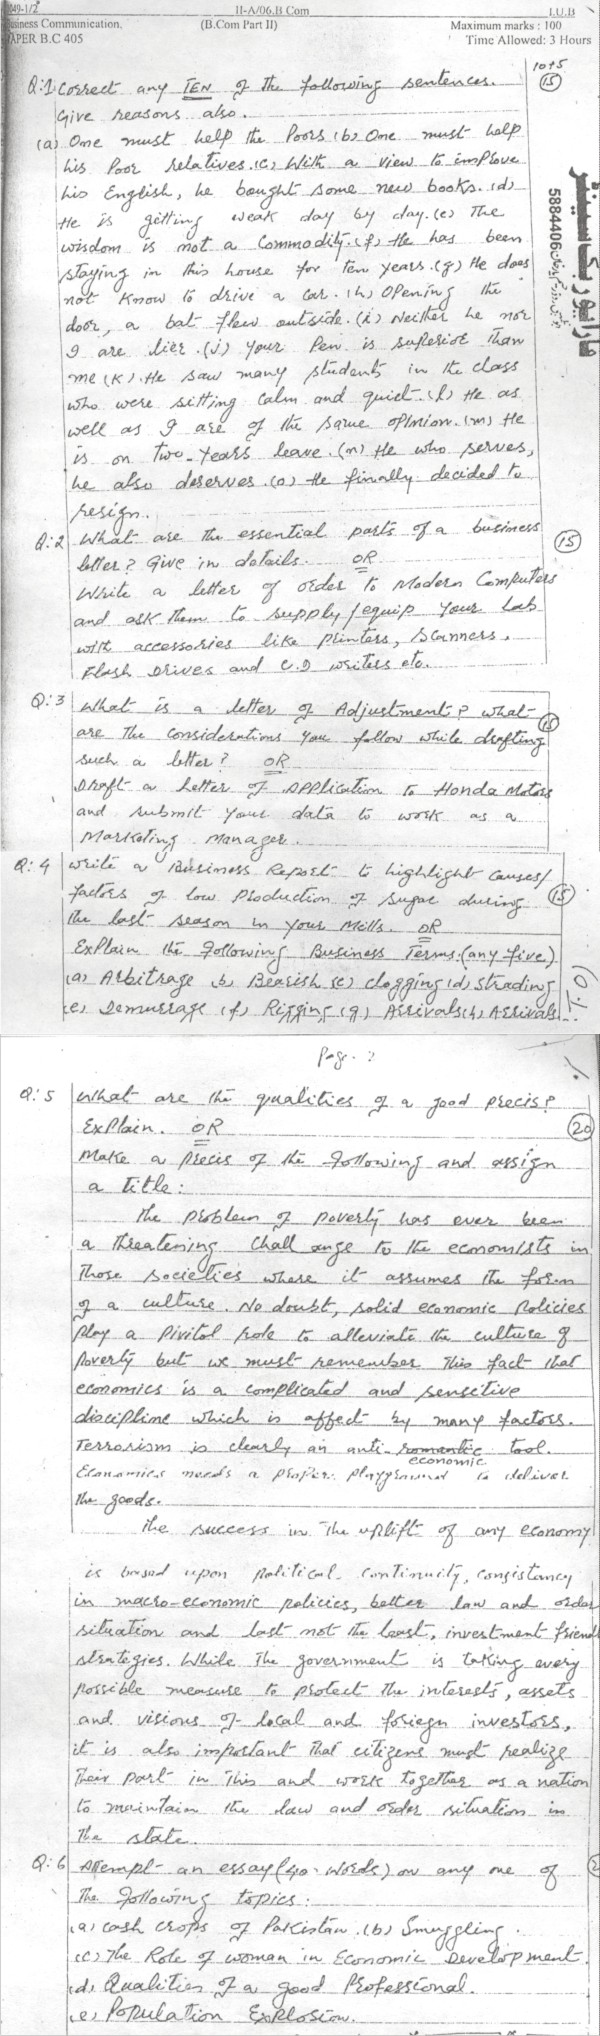 049-1/2 II-A/06.B Com I.U.B
Business Communication. (B.Com Part II) Maximum marks : 100
PAPER B.C 405 Time Allowed: 3 Hours
10+5
Q:1 Correct any TEN of the following sentences. (15)
Give reasons also.
(a) One must help the Poors (b) One must help
his Poor relatives. (c) With a view to improve
his English, he bought some new books. (d)
He is getting weak day by day. (e) The
wisdom is not a Commodity. (f) He has been
staying in this house for ten years. (g) He does
not Know to drive a car. (h) Opening the
door, a bat flew outside. (i) Neither he nor
I are lier. (j) Your Pen is superior Than
me (K). He saw many students in the class
who were sitting calm and quiet. (l) He as
well as I are of the same opinion. (m) He
is on two-Years leave. (n) He who serves,
he also deserves. (o) He finally decided to
resign.
5884406
Q:2 What are the essential parts of a business (15)
letter? Give in details. OR
Write a letter of order to Modern Computers
and ask them to supply/equip your Lab
with accessories like printers, Scanners,
Flash Drives and C.D writers etc.
Q:3 What is a letter of Adjustment? what (15)
are the considerations you follow while drafting
such a letter? OR
Draft a Letter of Application to Honda Motors
and submit your data to work as a
Marketing Manager.
Q:4 Write a Business Report to highlight causes/
factors of low Production of sugar during (15)
the last season in your Mills. OR
Explain the Following Business Terms: (any five)
(a) Arbitrage (b) Bearish (c) clogging (d) Strading
(e) Demurrage (f) Rigging (g) Arrivals (h) Arrivals
Page. 2
Q:5 What are the qualities of a good precis?
Explain. OR (20)
Make a Precis of the Following and assign
a title:
The problem of poverty has ever been
a threatening Chall ange to the economists in
those societies where it assumes the form
of a culture. No doubt, solid economic Policies
play a Pivitol role to alleviate the culture of
Poverty but we must remember This fact that
economics is a complicated and sensetive
discipline which is affect by many factors.
Terrorism is clearly an anti- economic tool.
Economics needs a proper playground to deliver
the goods.
The success in The uplift of any economy
is based upon Political Continuity, Consistancy
in macro-economic policies, better law and order
situation and last not the least, investment friend
strategies. While The government is taking every
possible measure to protect the interests, assets
and visions of local and foriegn investors,
it is also important that citizens must realize
Their part in This and work together as a nation
to maintain the law and order situation in
The state.
Q:6 Attempt an essay (40-words) on any one of
The Following topics:
(a) Cash crops of Pakistan. (b) Smuggling.
(c) The Role of woman in Economic Development.
(d) Qualities of a good Professional.
(e) Population Explosion.